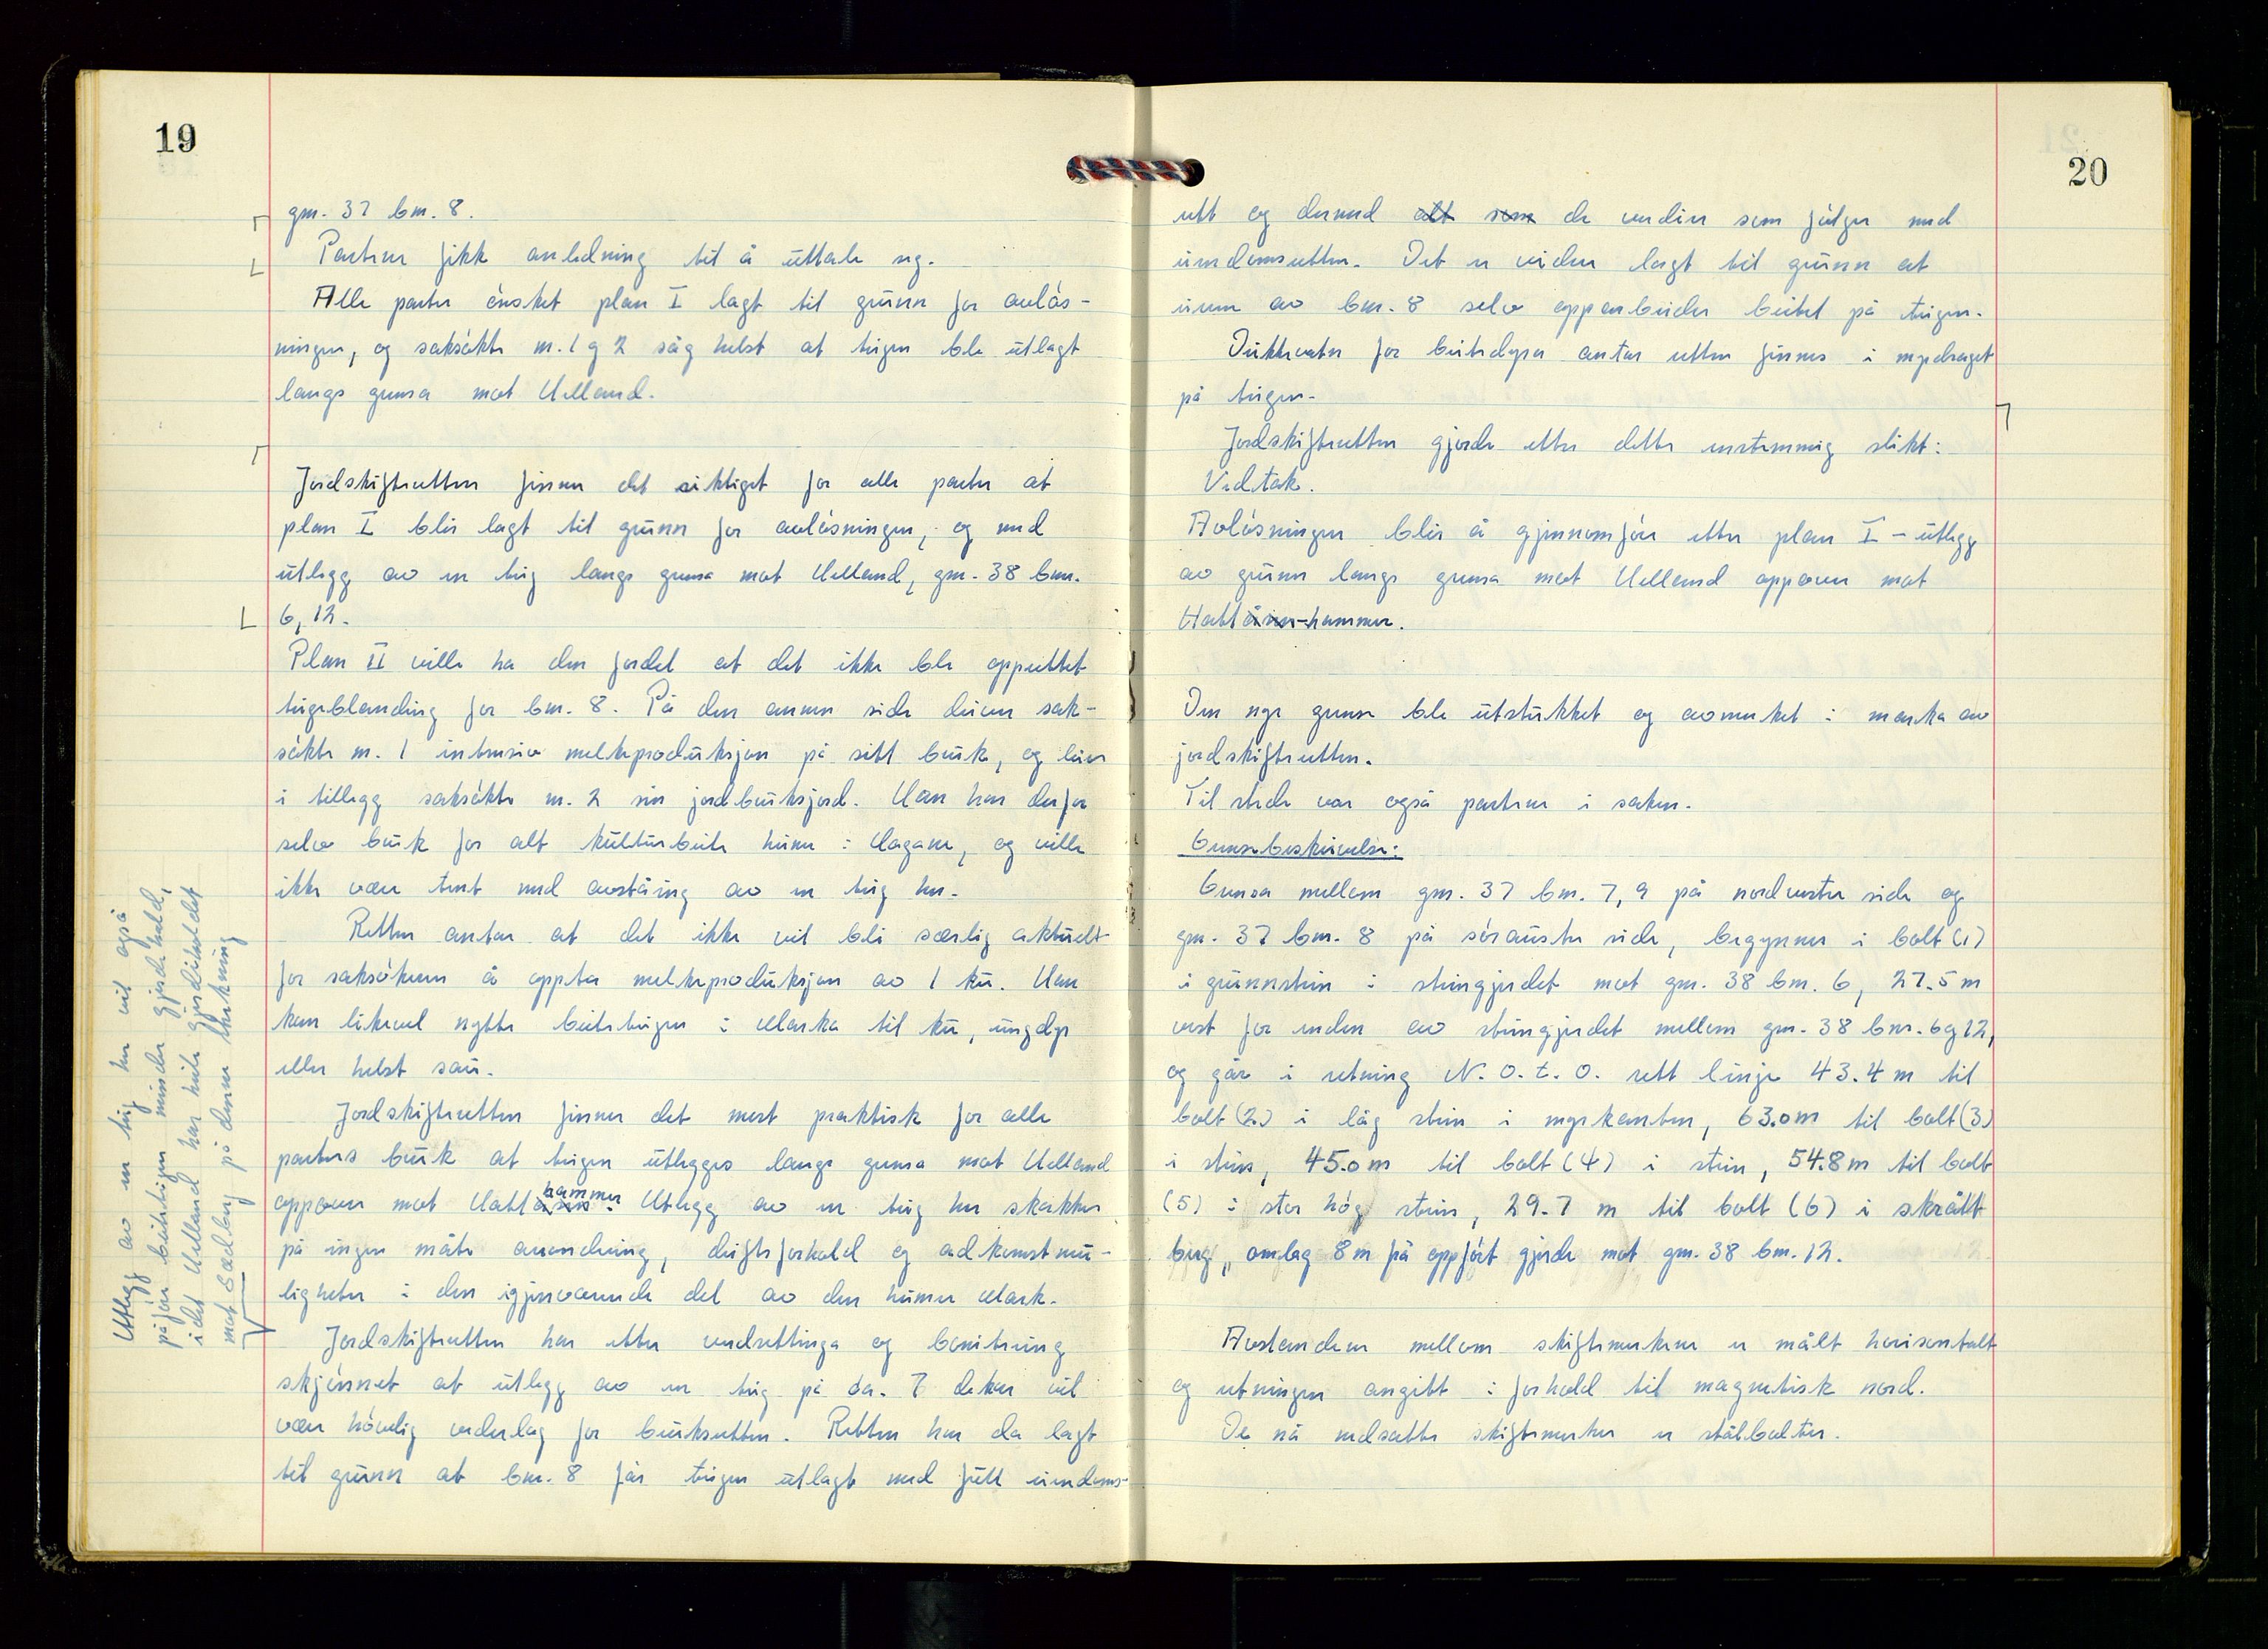 19
gnr. 37 bnr. 8.
Partene fikk anledning til å uttale seg.
Alle parter ønsket plan I lagt til grunn for avløs-
ningen, og saksøkte nr. 1 og 2 såg helst at teigen ble utlagt
langs grensa mot Helland.
Jordskifteretten finner det riktigst for alle parter at
plan I blir lagt til grunn for avløsningen, og med
utlegg av en teig langs grensa mot Helland, gnr. 38 bnr.
6, 12.
Plan II ville ha den fordel at det ikke ble opprettet
teigeblanding for bnr. 8. På den annen side driver sak-
søkte nr. 1 intensiv melkeproduksjon på sitt bruk, og leier
i tillegg saksøkte nr. 2 sin jordbruksjord. Han har derfor
selv bruk for alt kulturbeite heime i Hagane, og ville
ikke være tent med avståing av en teig her.
Retten antar at det ikke vil bli særlig aktuelt
for saksøkeren å oppta melkeproduksjon av 1 ku. Han
kan likevel nytte beiteteigen i Marka til ku, ungdyr
eller helst sau.
Jordskifteretten finner det mest praktisk for alle
parters bruk at teigen utlegges langs grensa mot Helland
oppover mot Hattåsen hammer. Utlegg av en teig her skakker
på ingen måte avrending, driftsforhold og adkomstmu-
ligheter i den igjenværende del av den heime Mark.
Jordskifteretten har etter verdsettinga og boniteringen
skjønnet at utlegg av en teig på ca. 7 dekar vil
være høvelig vederlag for bruksretten. Retten har da lagt
til grunn at bnr. 8 får teigen utlagt med full eiendoms-
Utlegg av en teig her vil også
påføre beiteteigen mindre gjerdehold,
idet Helland har heile gjerdeholdet
mot Sædberg på denne strekning
20
rett og dermed alt som de verdier som følger med
eiendomsretten. Det er videre lagt til grunn at
eieren av bnr. 8 selv opparbeider beitet på teigen.
Drikkevatn for beitedyra antar retten finnes i myrdraget
på teigen.
Jordskifteretten gjorde etter dette enstemmig slikt:
Vedtak.
Avløsningen blir å gjennomføre etter plan I - utlegg
av grunn langs grensa mot Helland oppover mot
Hattåsen-hammer.
Den nye grense ble utstukket og avmerket i marka av
jordskifteretten.
Til stede var også partene i saken.
Grensebeskrivelse:
Grensa mellom gnr. 37 bnr. 7, 9 på nordvestre side og
gnr. 37 bnr. 8 på søraustre side, begynner i bolt (1)
i grunnstein i steingjerdet mot gnr. 38 bnr. 6, 27.5 m
vest for enden av steingjerdet mellom gnr. 38 bnr. 6 og 12,
og går i retning N.O.t.O. rett linje 43.4 m til
bolt (2.) i låg stein i myrkanten, 63.0 m til bolt (3)
i stein, 45.0 m til bolt (4) i stein, 54.8 m til bolt
(5) i stor høg stein, 29.7 m til bolt (6) i skrått
berg, omlag 8 m frå oppført gjerde mot gnr. 38 bnr. 12.
Avstandene mellom skiftemerkene er målt horisontalt
og retningen angitt i forhold til magnetisk nord.
De nå nedsatte skiftemerker er stålbolter.